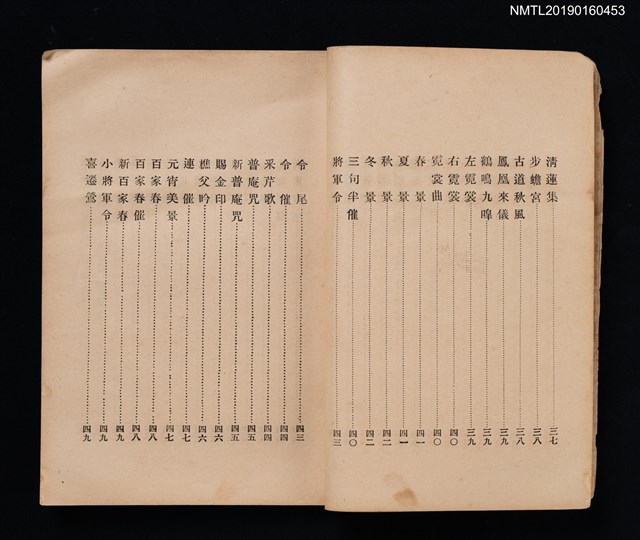 NMTL20190160453
清蓮集 三七
步蟾宮 三八
古道秋風 三八
鳳凰來儀 三九
鶴鳴九皐 三九
左霓裳 三九
右霓裳 四〇
霓裳曲 四〇
春景 四一
夏景 四一
秋景 四二
冬景 四二
三句半催 四〇
將軍令 四三
令尾 四三
令催 四四
采芹歌 四四
普庵咒 四五
新普庵咒 四五
賜金印 四六
樵父吟 四六
連催 四七
元宵美景 四七
百家春 四八
百家春催 四八
新百家春 四九
小將軍令 四九
喜遷鶯 四九